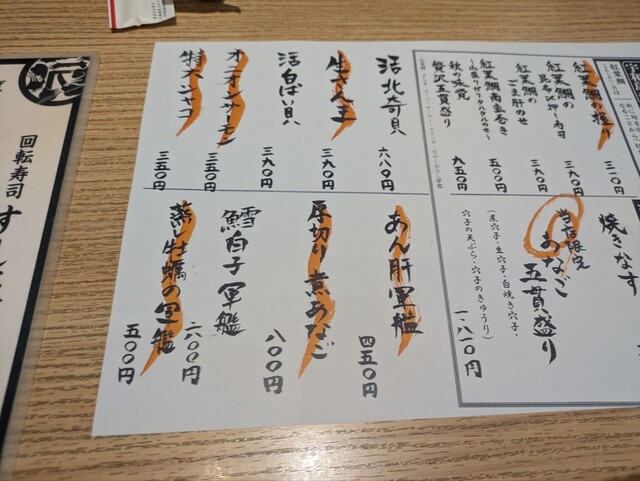 紅葉鯛の握り
三一〇円
紅葉鯛の
昆布〆押し寿司
三九〇円
紅葉鯛の
ごま肝のせ
三九〇円
紅葉鯛南蛮巻き
五〇〇円
秋の味覚
贅沢五貫盛り
九五〇円
焼きなす
当店限定
あなご
五貫盛り
(煮穴子・生穴子・白焼き穴子・
穴子の天ぷら・穴子のきゅうり)
一、八一〇円
活北寄貝
六八〇円
生さんま
三九〇円
活白ばい貝
三九〇円
オニオンサーモン
三五〇円
特大シャコ
三五〇円
あん肝軍艦
四五〇円
厚切り煮あなご
八〇〇円
鱈白子軍艦
六〇〇円
蒸し牡蠣の軍艦
五〇〇円
回転寿司